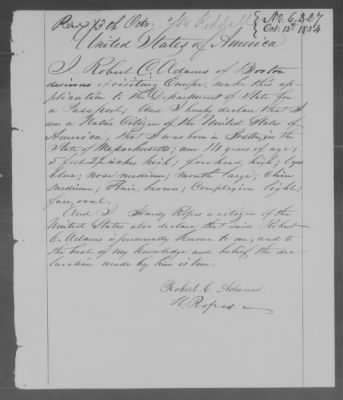 No. 6,327
Oct. 13th 1854
United States of America
I Robert C. Adams of Boston
desirous of visiting Europe, make this ap-
plication to the Department of State for
a Passport; And I hereby declare that I
am a Native Citizen of the United States of
America; that I was born in Boston, in the
State of Massachusetts; am 14 years of age;
5 feet 2 inches high; forehead, high; Eyes
blue; nose medium; mouth large; Chin
medium; Hair brown; Complexion light;
face, oval.
And I Hardy Ropes a citizen of the
United States also declare that said Robert
C. Adams is personally known to me; and to
the best of my knowledge and belief, the dec-
laration made by him is true.
Robert C. Adams
H. Ropes.